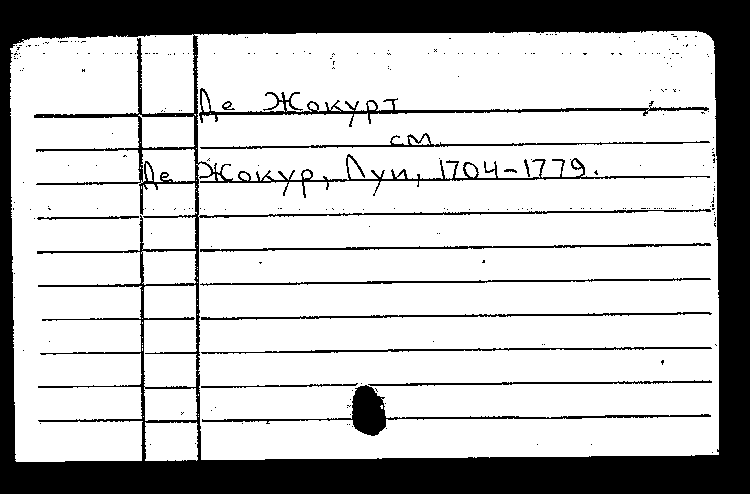 Де Жокурт
см.
Де Жокур, Луи, 1704-1779.